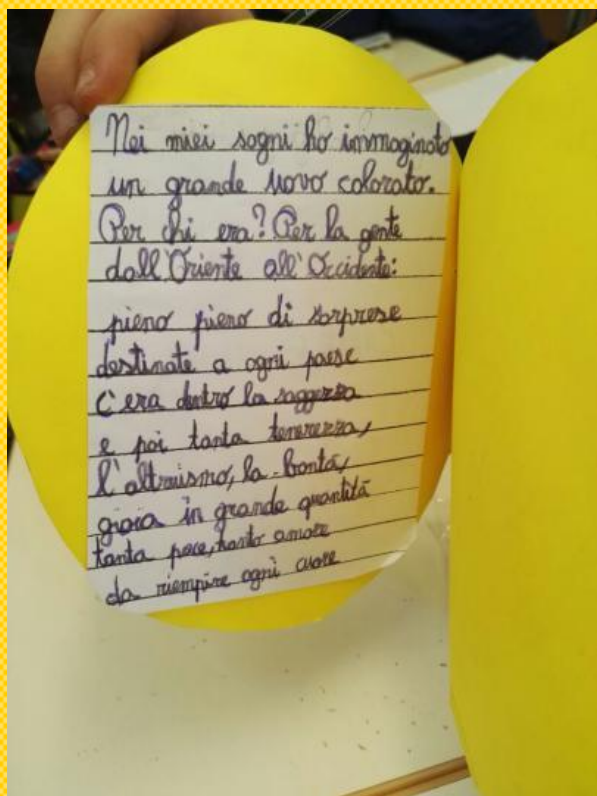 Nei miei sogni ho immaginato
un grande uovo colorato.
Per chi era? Per la gente
dall'Oriente all'Occidente:
pieno pieno di sorprese
destinate a ogni paese
c'era dentro la saggezza
e poi tanta tenerezza,
l'altruismo, la bontà,
gioia in grande quantità
tanta pace, tanto amore
da riempire ogni cuore